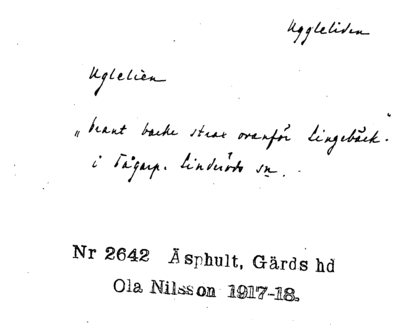 Uggleliden
Uglelien
"brant backe strax ovanför Lingebäck."
i Fågarp. Linderöds sn.
Nr 2642 Äsphult, Gärds hd
Ola Nilsson 1917-18.